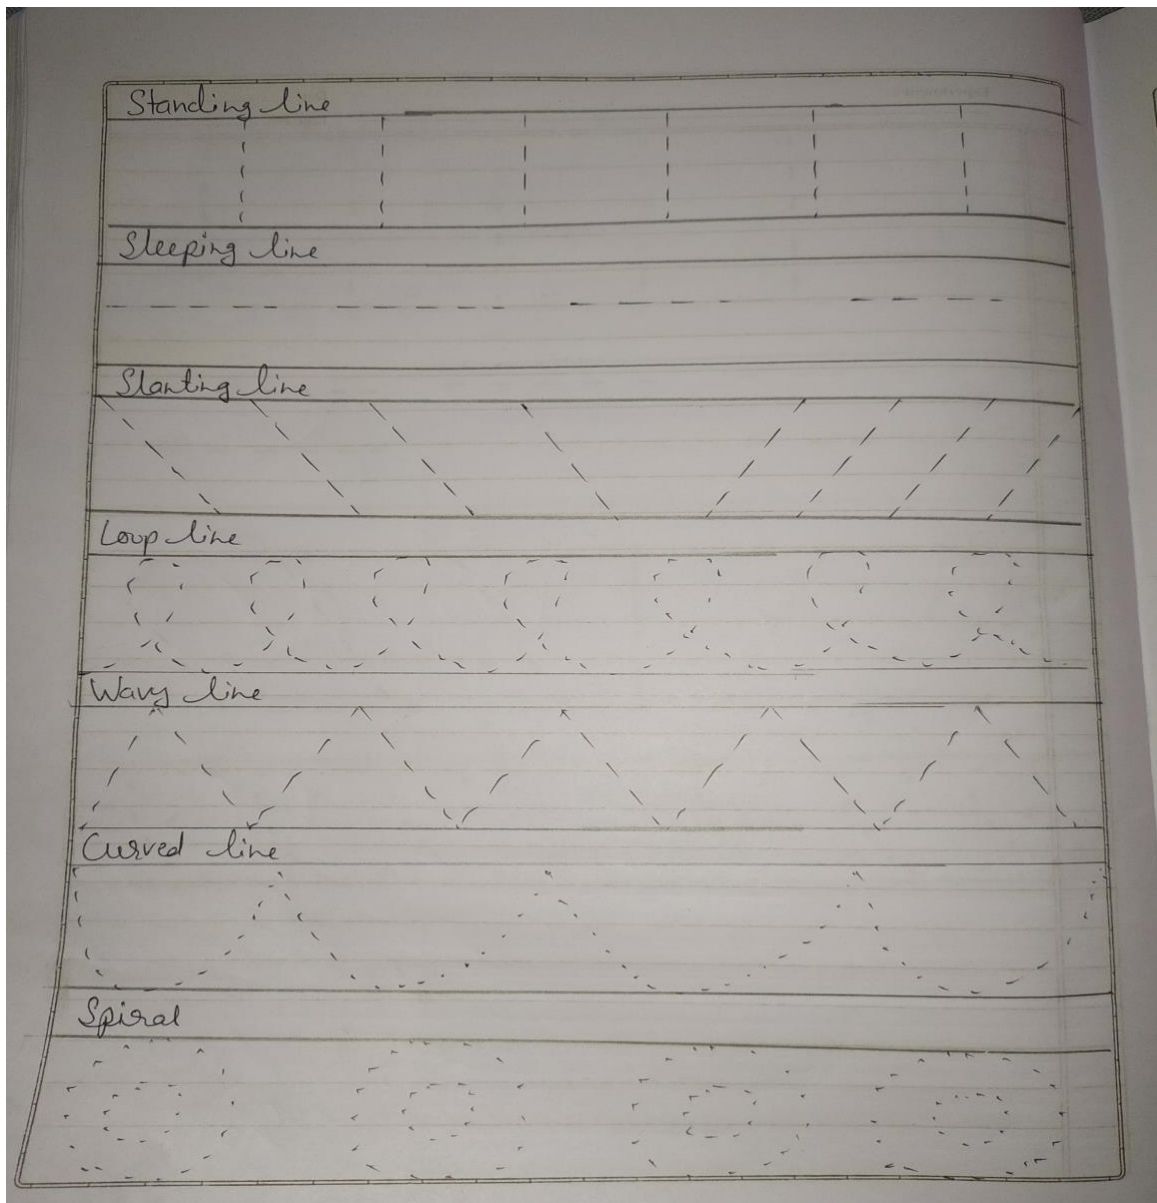 Standing line
Sleeping line
Slanting line
Loop line
Wavy line
Curved line
Spiral